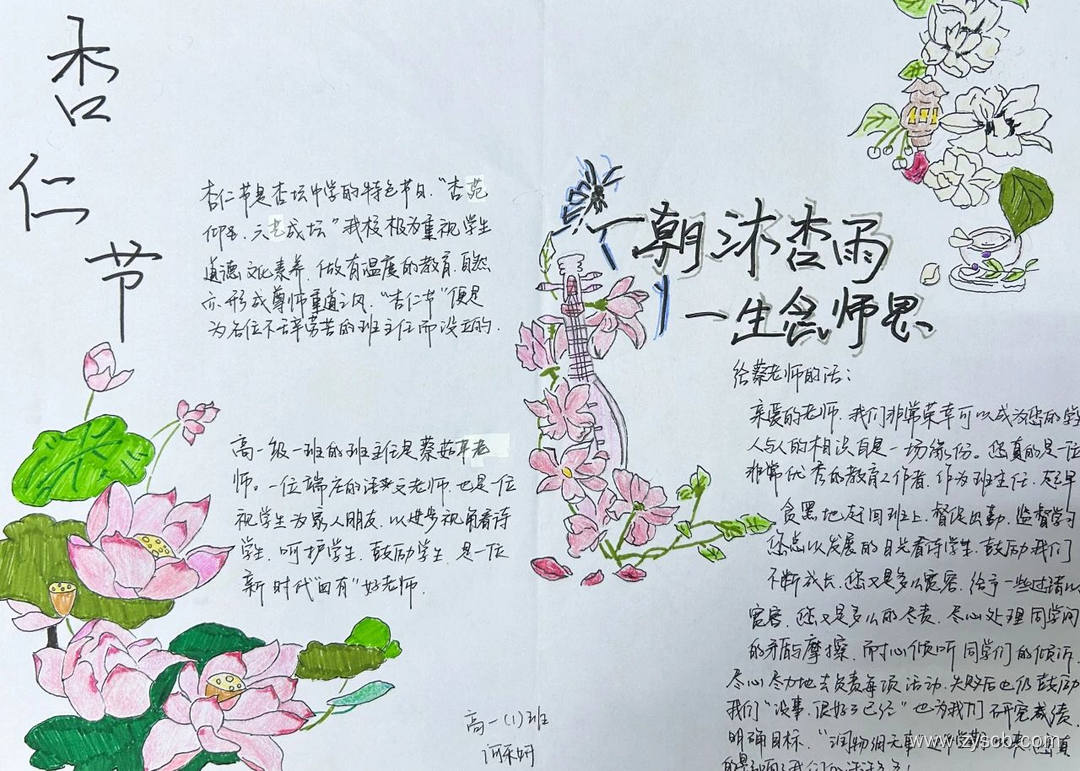 杏仁节
杏仁节是杏坛中学的特色节日,“杏苑
”我校极为重视学生
道德文化素养,做有温度的教育,自然
亦形成尊师重道之风,“杏仁节”便是
为各位不辞劳苦的班主任而设立的.
高一级一班的班主任是蔡
师。一位端庄的语文老师,也是一位
视学生为家人朋友,以进步视角看待
学生,呵护学生,鼓励学生,是一位
新时代“四有”好老师.
高一(1)班
一朝沐杏雨
一生念师恩
给蔡老师的话:
亲爱的老师,我们非常荣幸可以成为您的学
人与人的相识自是一场缘份。您真的是一位
非常优秀的教育工作者,作为班主任,起早
贪黑地赶回班上,督促出勤,监督学习
您总以发展的目光看待学生,鼓励我们
不断成长,您又是多么宽容,给予一些过错以
宽容,您又是多么的尽责,尽心处理同学间
的矛盾与摩擦,耐心倾听同学们的倾诉,
尽心尽力地去负责每项活动,失败后也仍鼓励
我们“没事,很好了已经”也为我们研究成绩,
明确目标,“润物细无声”
www.zyscb.com